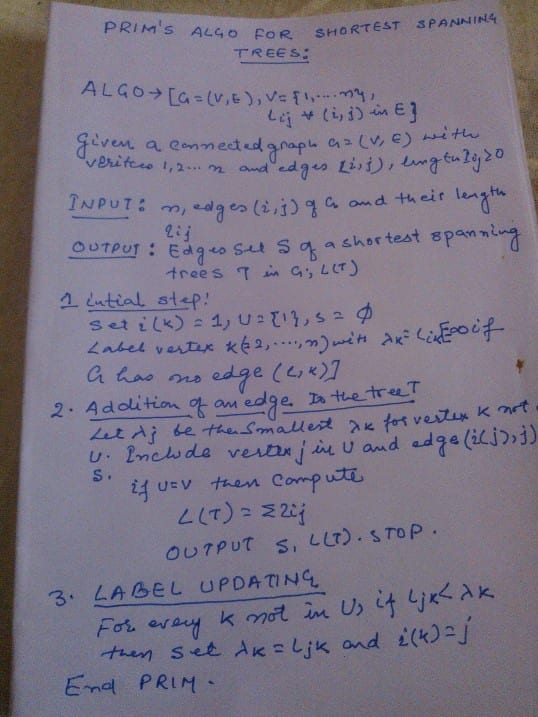 PRIM'S ALGO FOR SHORTEST SPANNING
TREES:
ALGO → [G=(V,E), V={1,....n},
Lij ∀ (i,j) in E]
Given a connected graph G=(V,E) with
veritces 1,2... n and edges (i,j), length lij>0
INPUT: n, edges (i,j) of G and their length
lij
OUTPUT: Edges set S of a shortest spanning
trees T in G; L(T)
1 intial step:
Set i(k) = 1, U={1}, S = ∅
Label vertex k(=2,....,n) with λk = Lik [∞ if
G has no edge (i,k)]
2. Addition of an edge To the tree T
Let λj be the smallest λk for vertex k not
U. Include vertex j in U and edge (i(j), j)
S.
if U=V then compute
L(T) = Σlij
OUTPUT S, L(T). STOP.
3. LABEL UPDATING
For every k not in U, if Ljk < λk
then set λk = Ljk and i(k)=j
End PRIM.